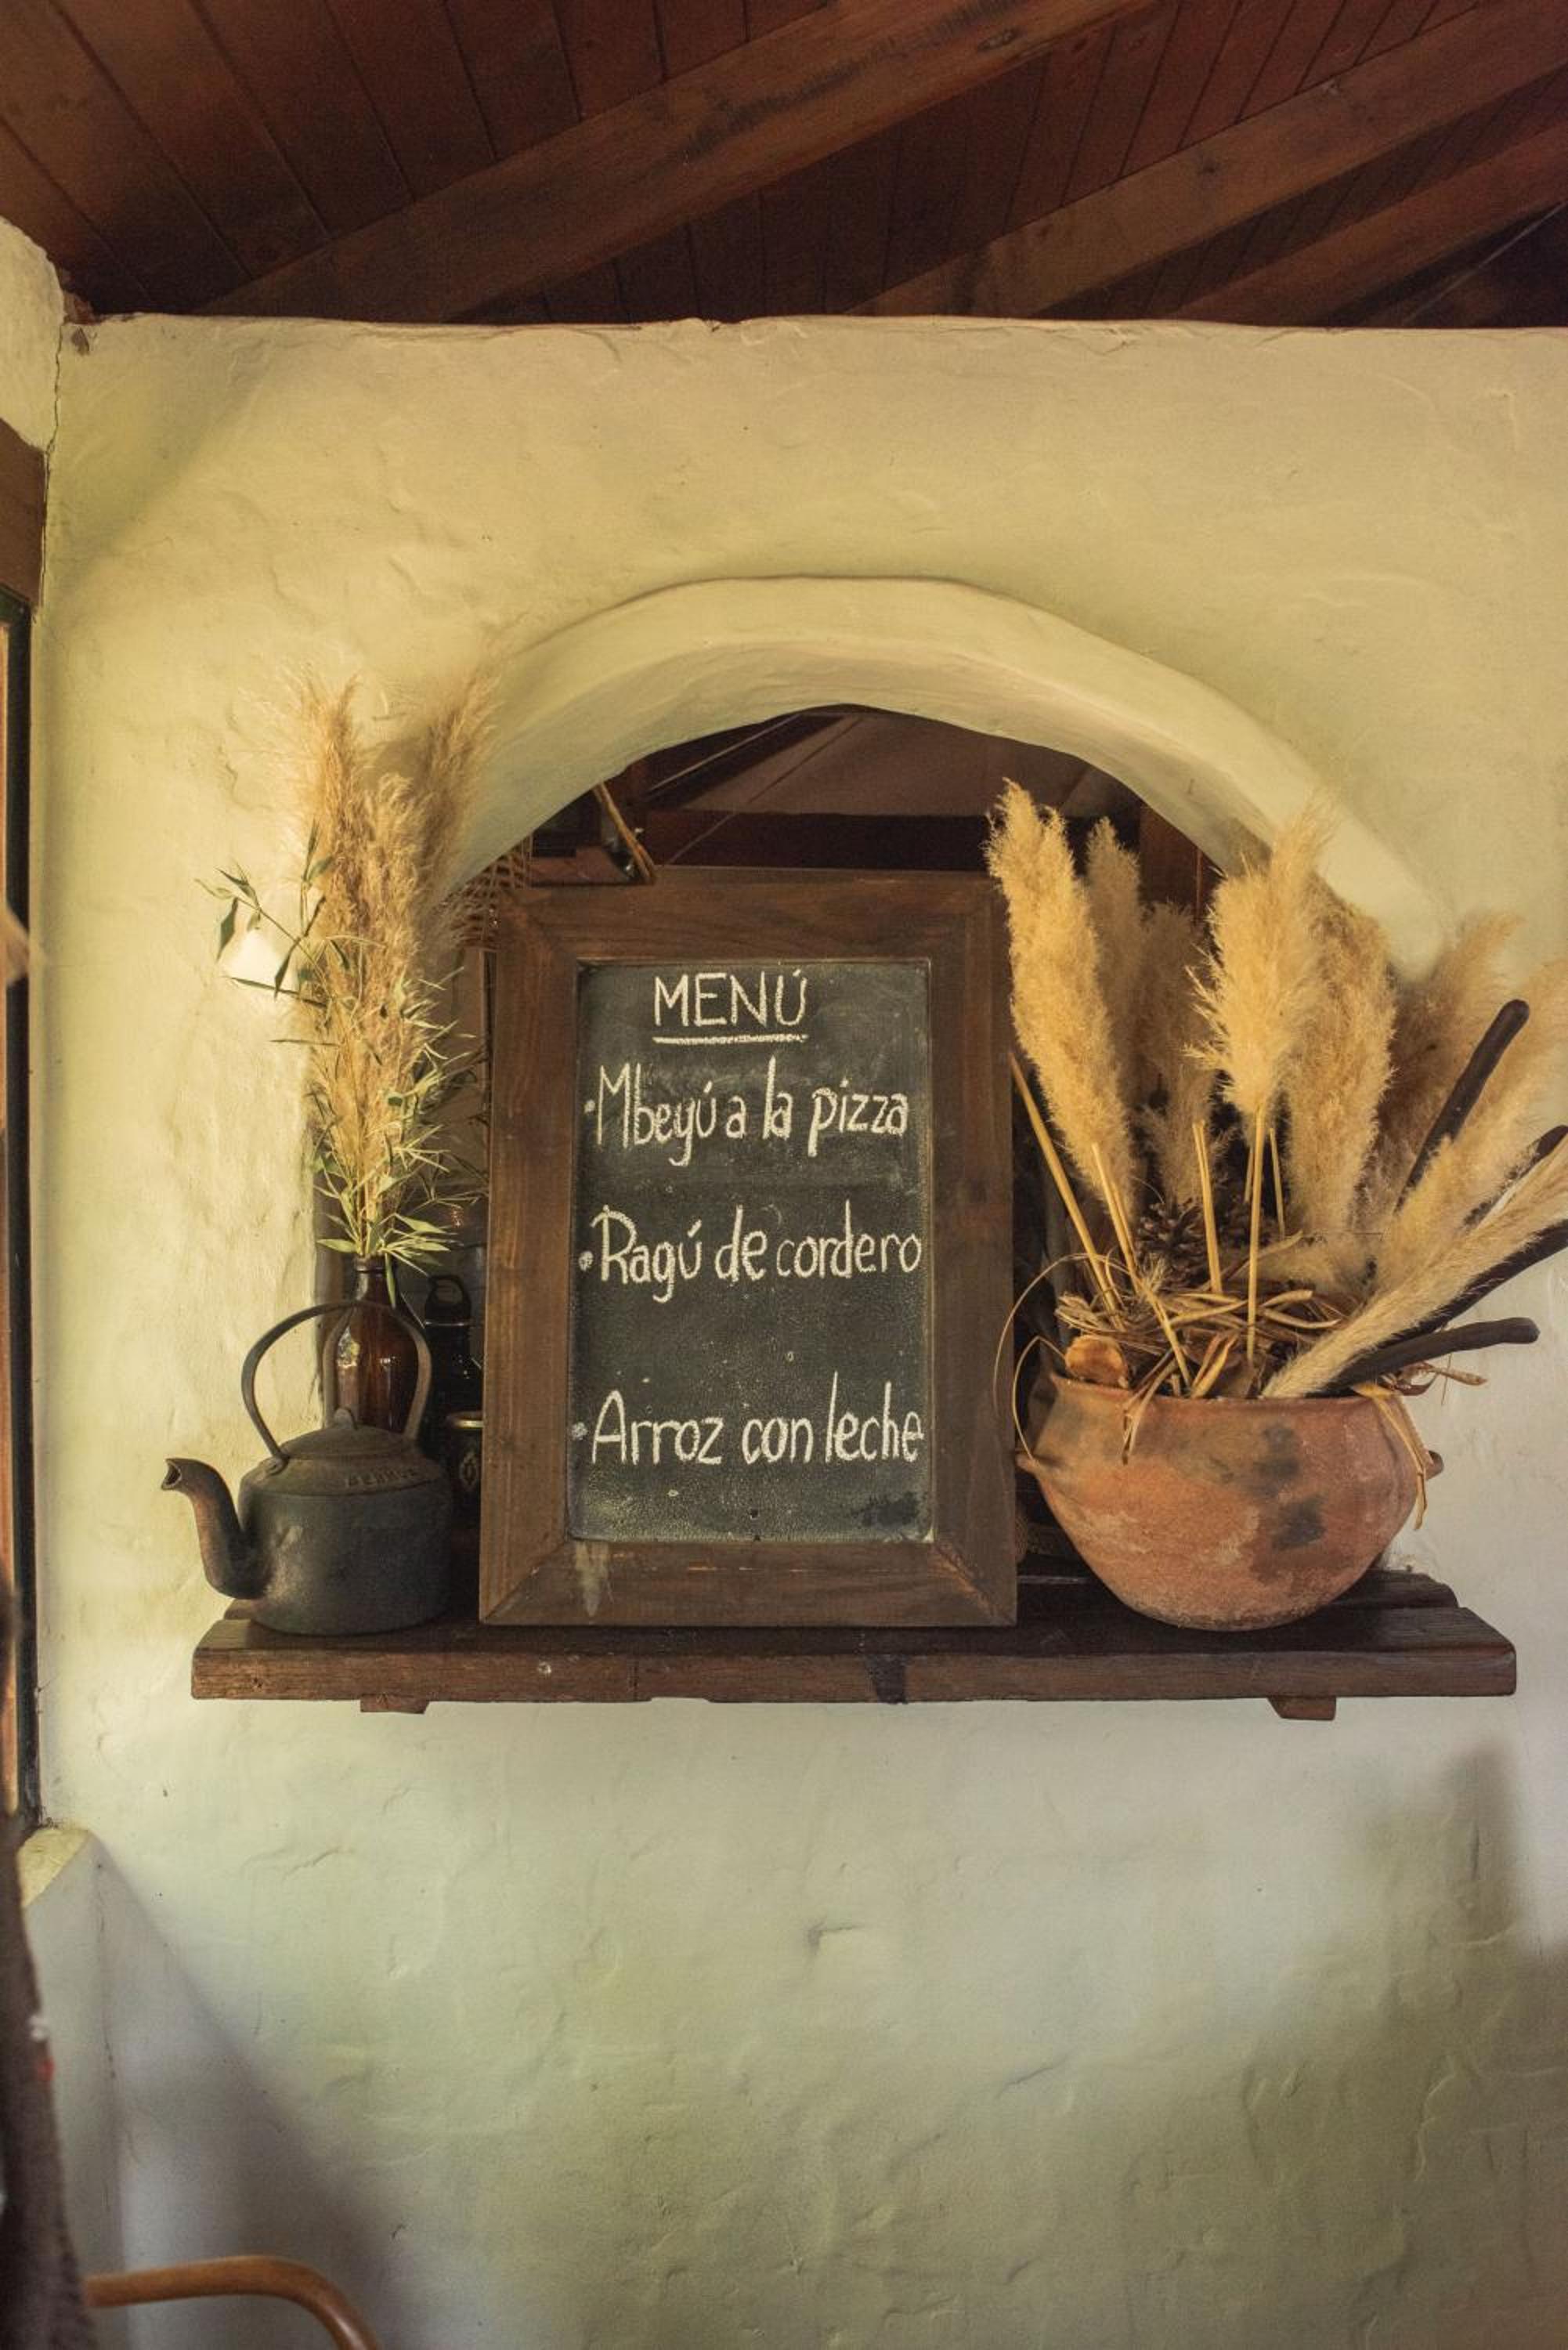 MENÚ
·Mbeyú a la pizza
·Ragú de cordero
·Arroz con leche